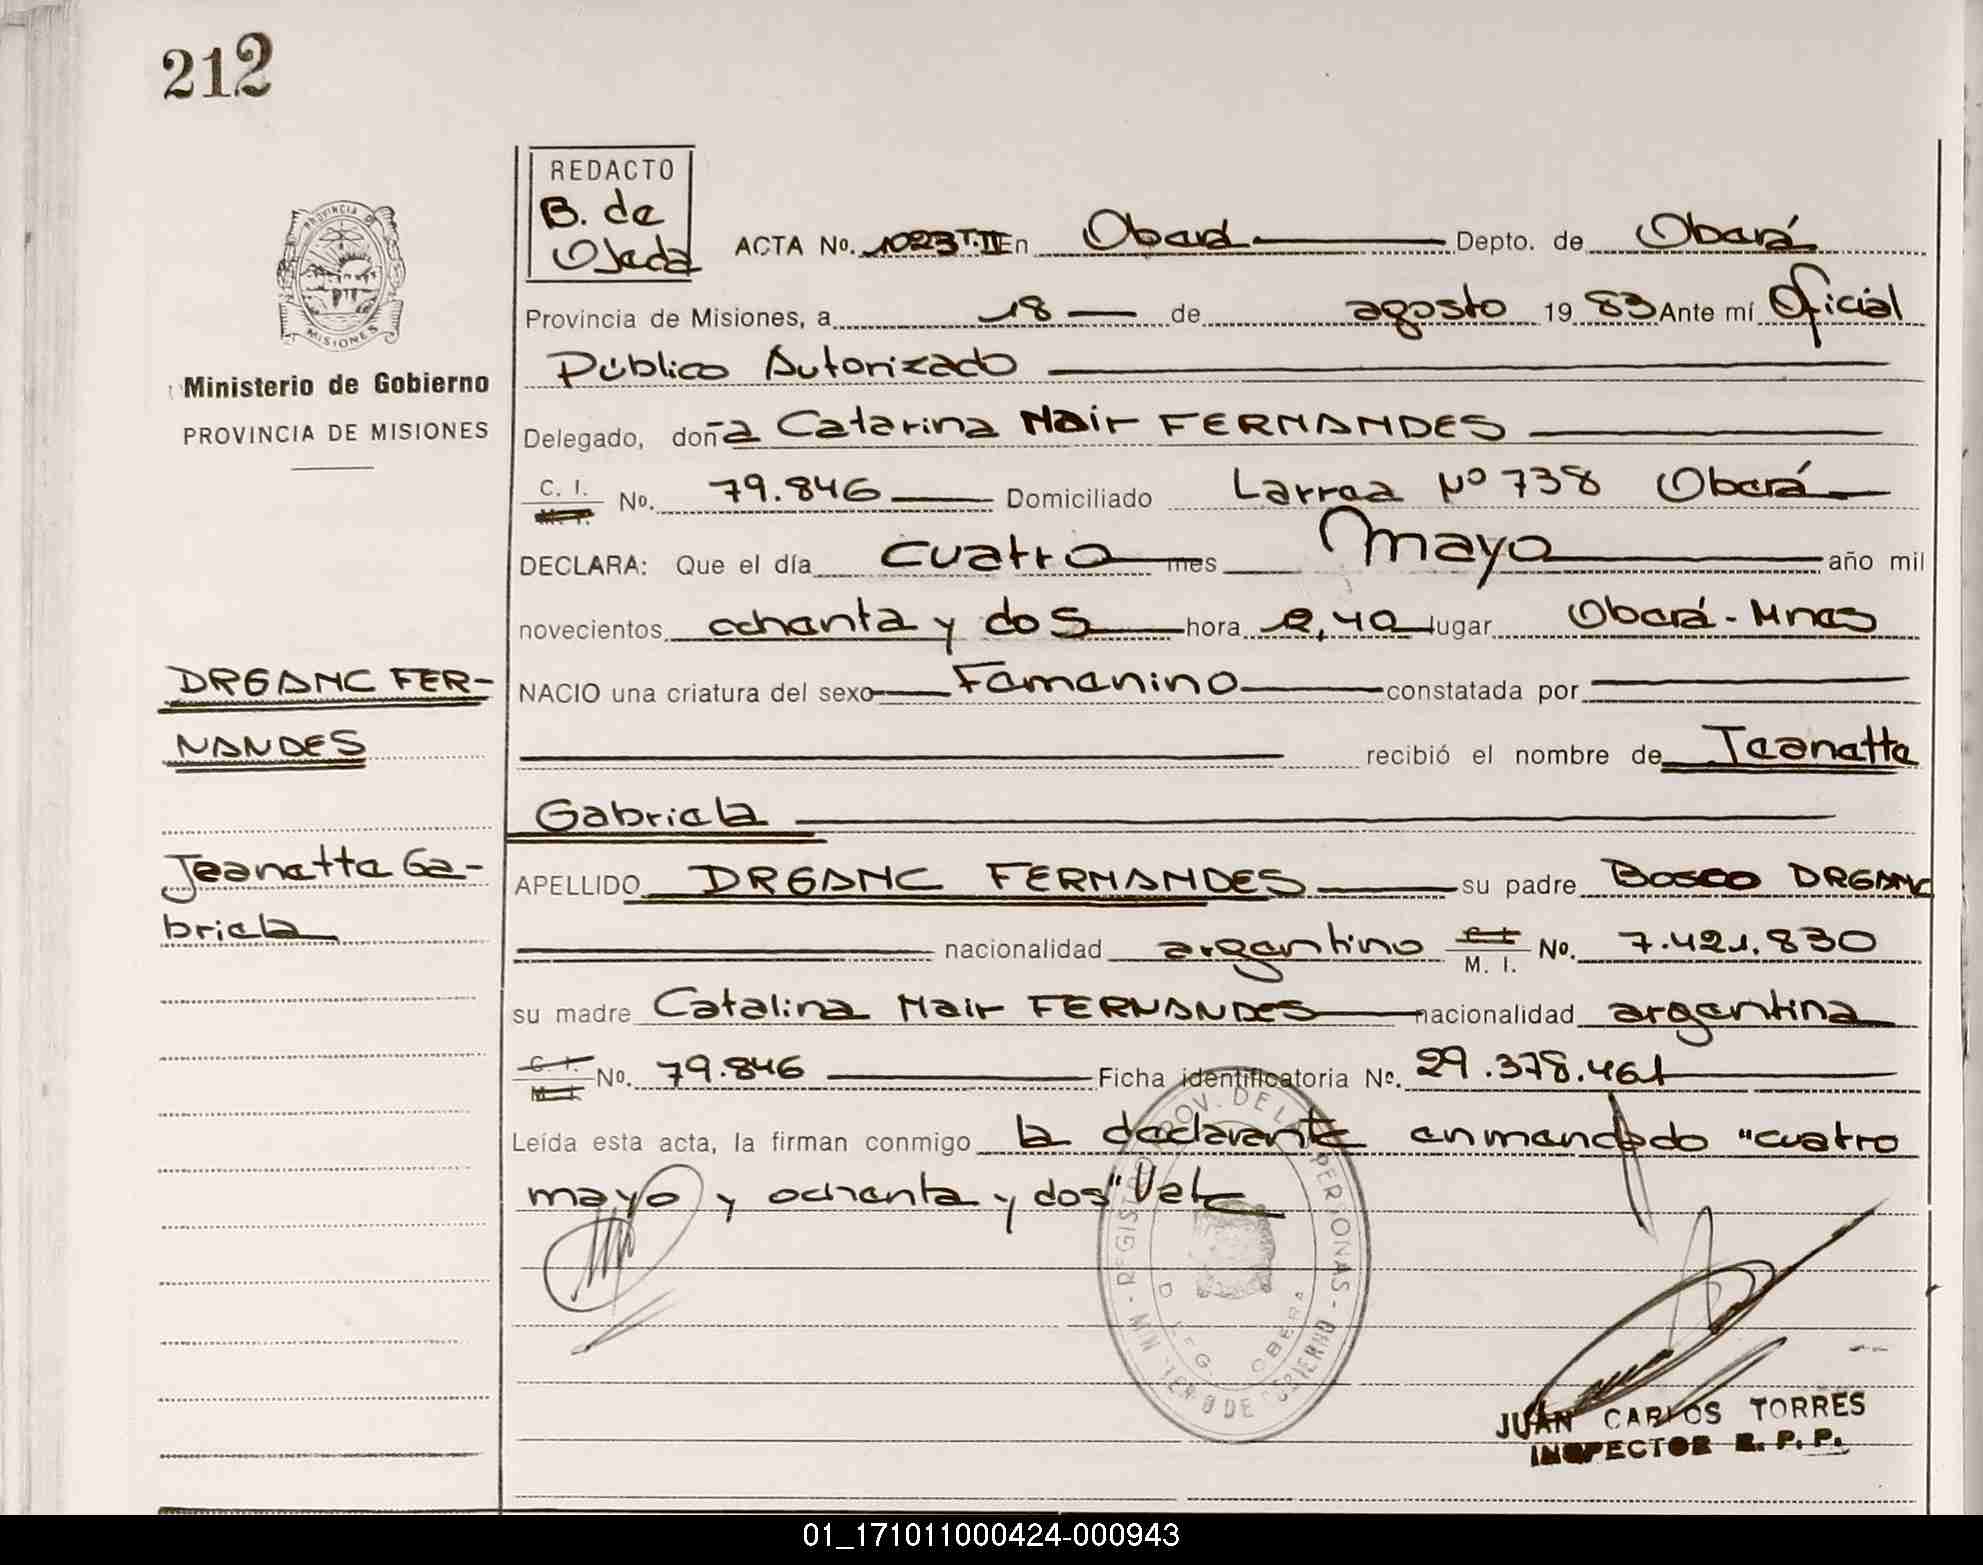 212
REDACTO
B. de
Ojeda
PROVINCIA DE
MISIONES
Ministerio de Gobierno
PROVINCIA DE MISIONES
ACTA No. 1023 T.II En Oberá Depto. de Oberá
Provincia de Misiones, a 18 de agosto 1983 Ante mí Oficial
Público Autorizado
Delegado, doña Catarina Nair FERNANDES
C. I. No. 79.846 Domiciliado Larrea Nº 738 Oberá
DECLARA: Que el día cuatro mes Mayo año mil
novecientos ochenta y dos hora 2,40 lugar Oberá - Mnes
NACIO una criatura del sexo Femenino constatada por
recibió el nombre de Jeanette
Gabriela
APELLIDO DRGANC FERNANDES su padre Bosco DRGANC
nacionalidad argentino C. I. M. I. No. 7.421.830
su madre Catalina Nair FERNANDES nacionalidad argentina
C. I. M. I. No. 79.846 Ficha identificatoria No. 29.378.461
Leída esta acta, la firman conmigo la declarante enmendado "cuatro
mayo y ochenta y dos" Vale
DRGANC FER-
NANDES
Jeanette Ga-
briela
REGISTRO PROV. DE LAS PERSONAS - MINISTERIO DE GOBIERNO
DELEG. OBERA
JUAN CARLOS TORRES
INSPECTOR R. P. P.
01_171011000424-000943